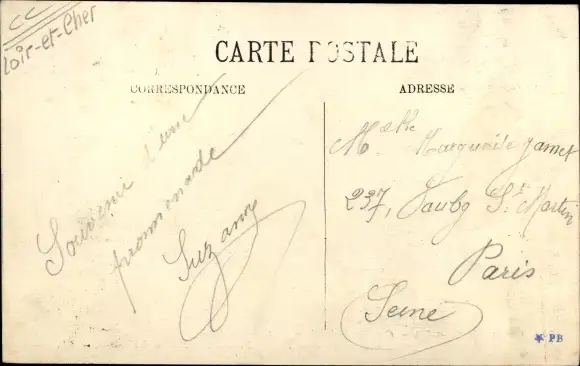 Loir-et-Cher
CARTE POSTALE
CORRESPONDANCE
ADRESSE
Souvenir d'une
promenade
Suzanne
Melle Marguerite Jamet
237, Faubg St Martin
Paris
Seine
PB